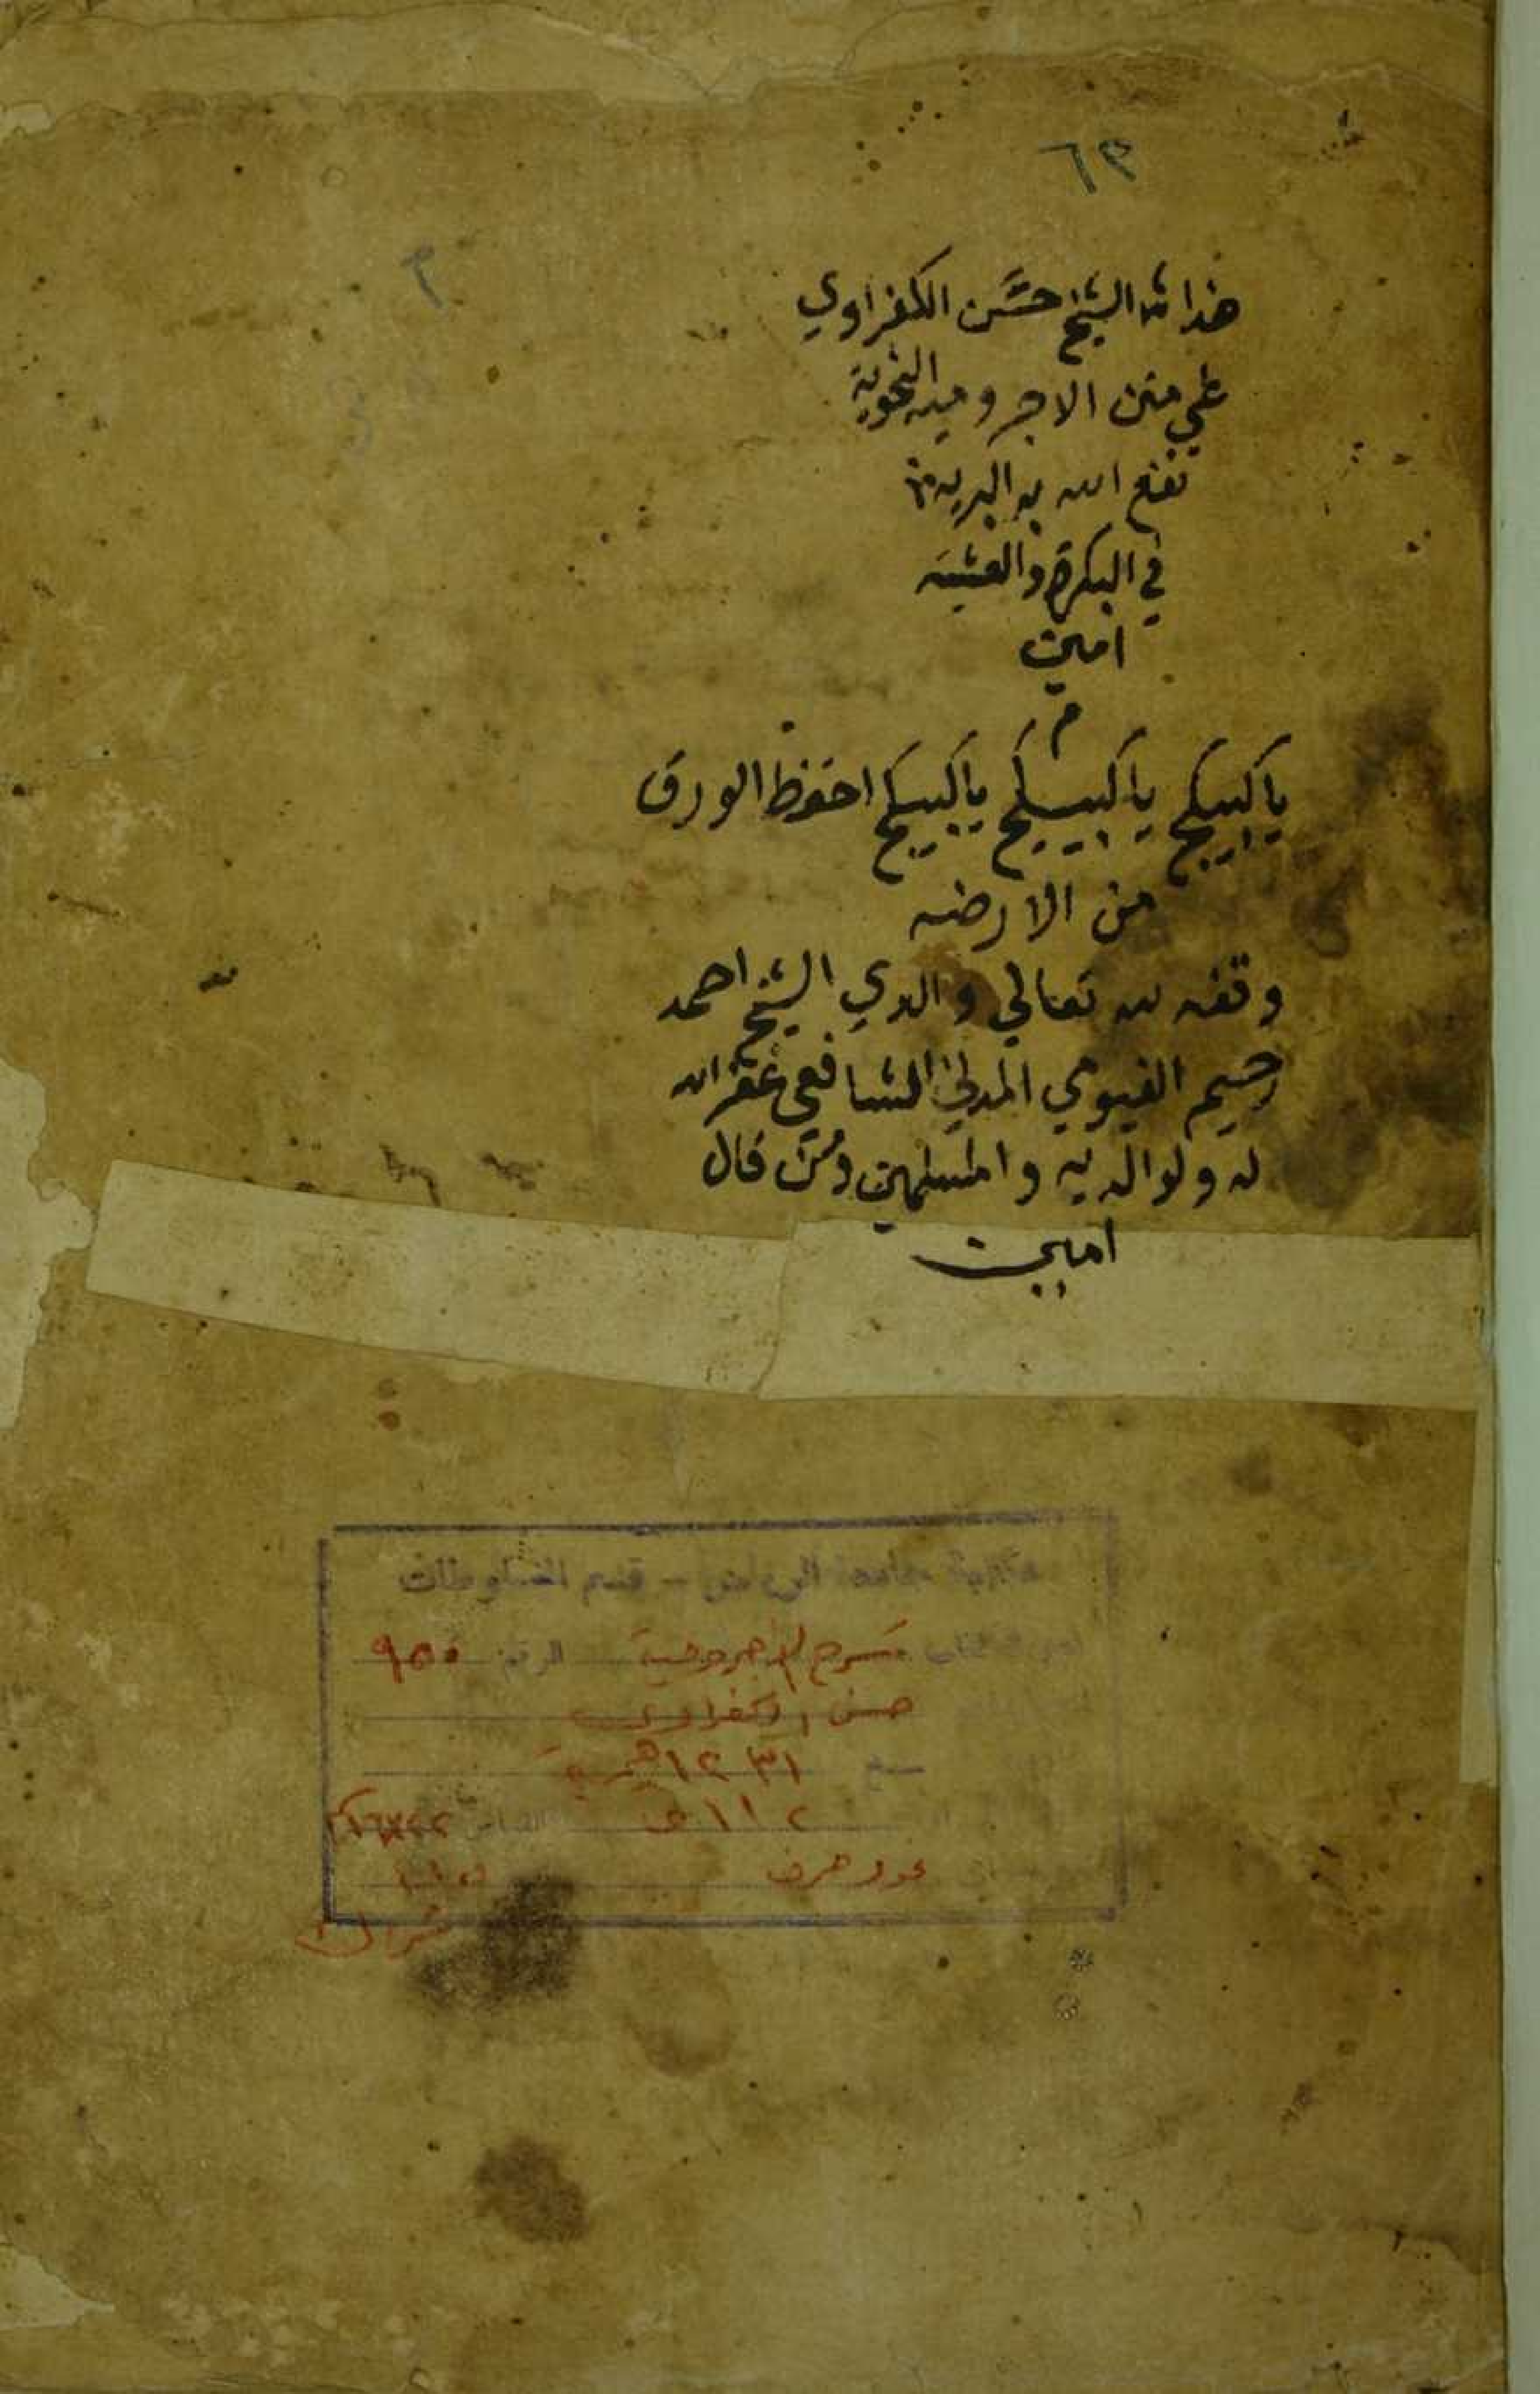 ٦٣
٢
هذا شـ الشيخ حسن الكفراوي
علي متن الاجروميه النحوية
نفع الله به البريه
في البكرة والعشيه
امين
م
يا كبيكج يا كبيكج يا كبيكج احفظ الورق
من الارضه
وقفه لله تعالي والدي الشيخ احمد
رحيم الفيومي المدني الشافعي غفر الله
له ولوالديه والمسلمين ومن قال
امين
مكتبة جامعة الرياض - قسم المخطوطات
شرح الاجرومية الرقم ٩٥٥
حسن الكفراوي
١٢٣١ هجرية
١١٢